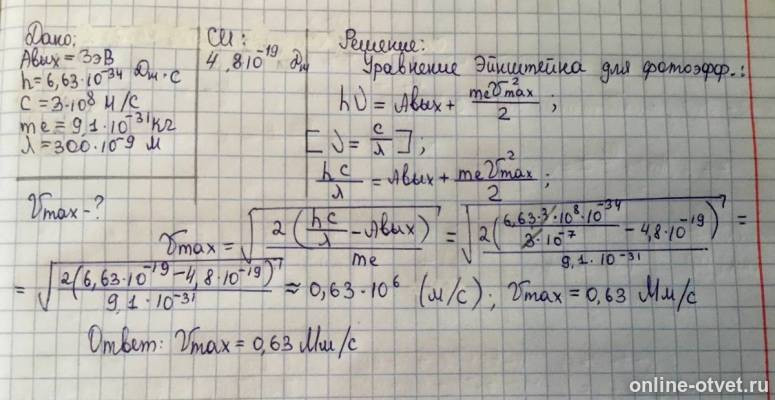 Дано:
Aвых = 3эВ
h = 6,63·10⁻³⁴ Дж·с
c = 3·10⁸ м/с
me = 9,1·10⁻³¹кг
λ = 300·10⁻⁹ м
Vmax - ?
СИ:
4,8·10⁻¹⁹ Дж
Решение:
Уравнение Эйнштейна для фотоэфф.:
hν = Aвых + meV²max/2 ;
[ν = c/λ] ;
hc/λ = Aвых + meV²max/2 ;
Vmax = √(2(hc/λ - Aвых)/me) = √(2(6,63·3·10⁸·10⁻³⁴/3·10⁻⁷ - 4,8·10⁻¹⁹)/9,1·10⁻³¹) =
= √(2(6,63·10⁻¹⁹ - 4,8·10⁻¹⁹)/9,1·10⁻³¹) ≈ 0,63·10⁶ (м/с) ; Vmax = 0,63 Мм/с
Ответ: Vmax = 0,63 Мм/с
online-otvet.ru